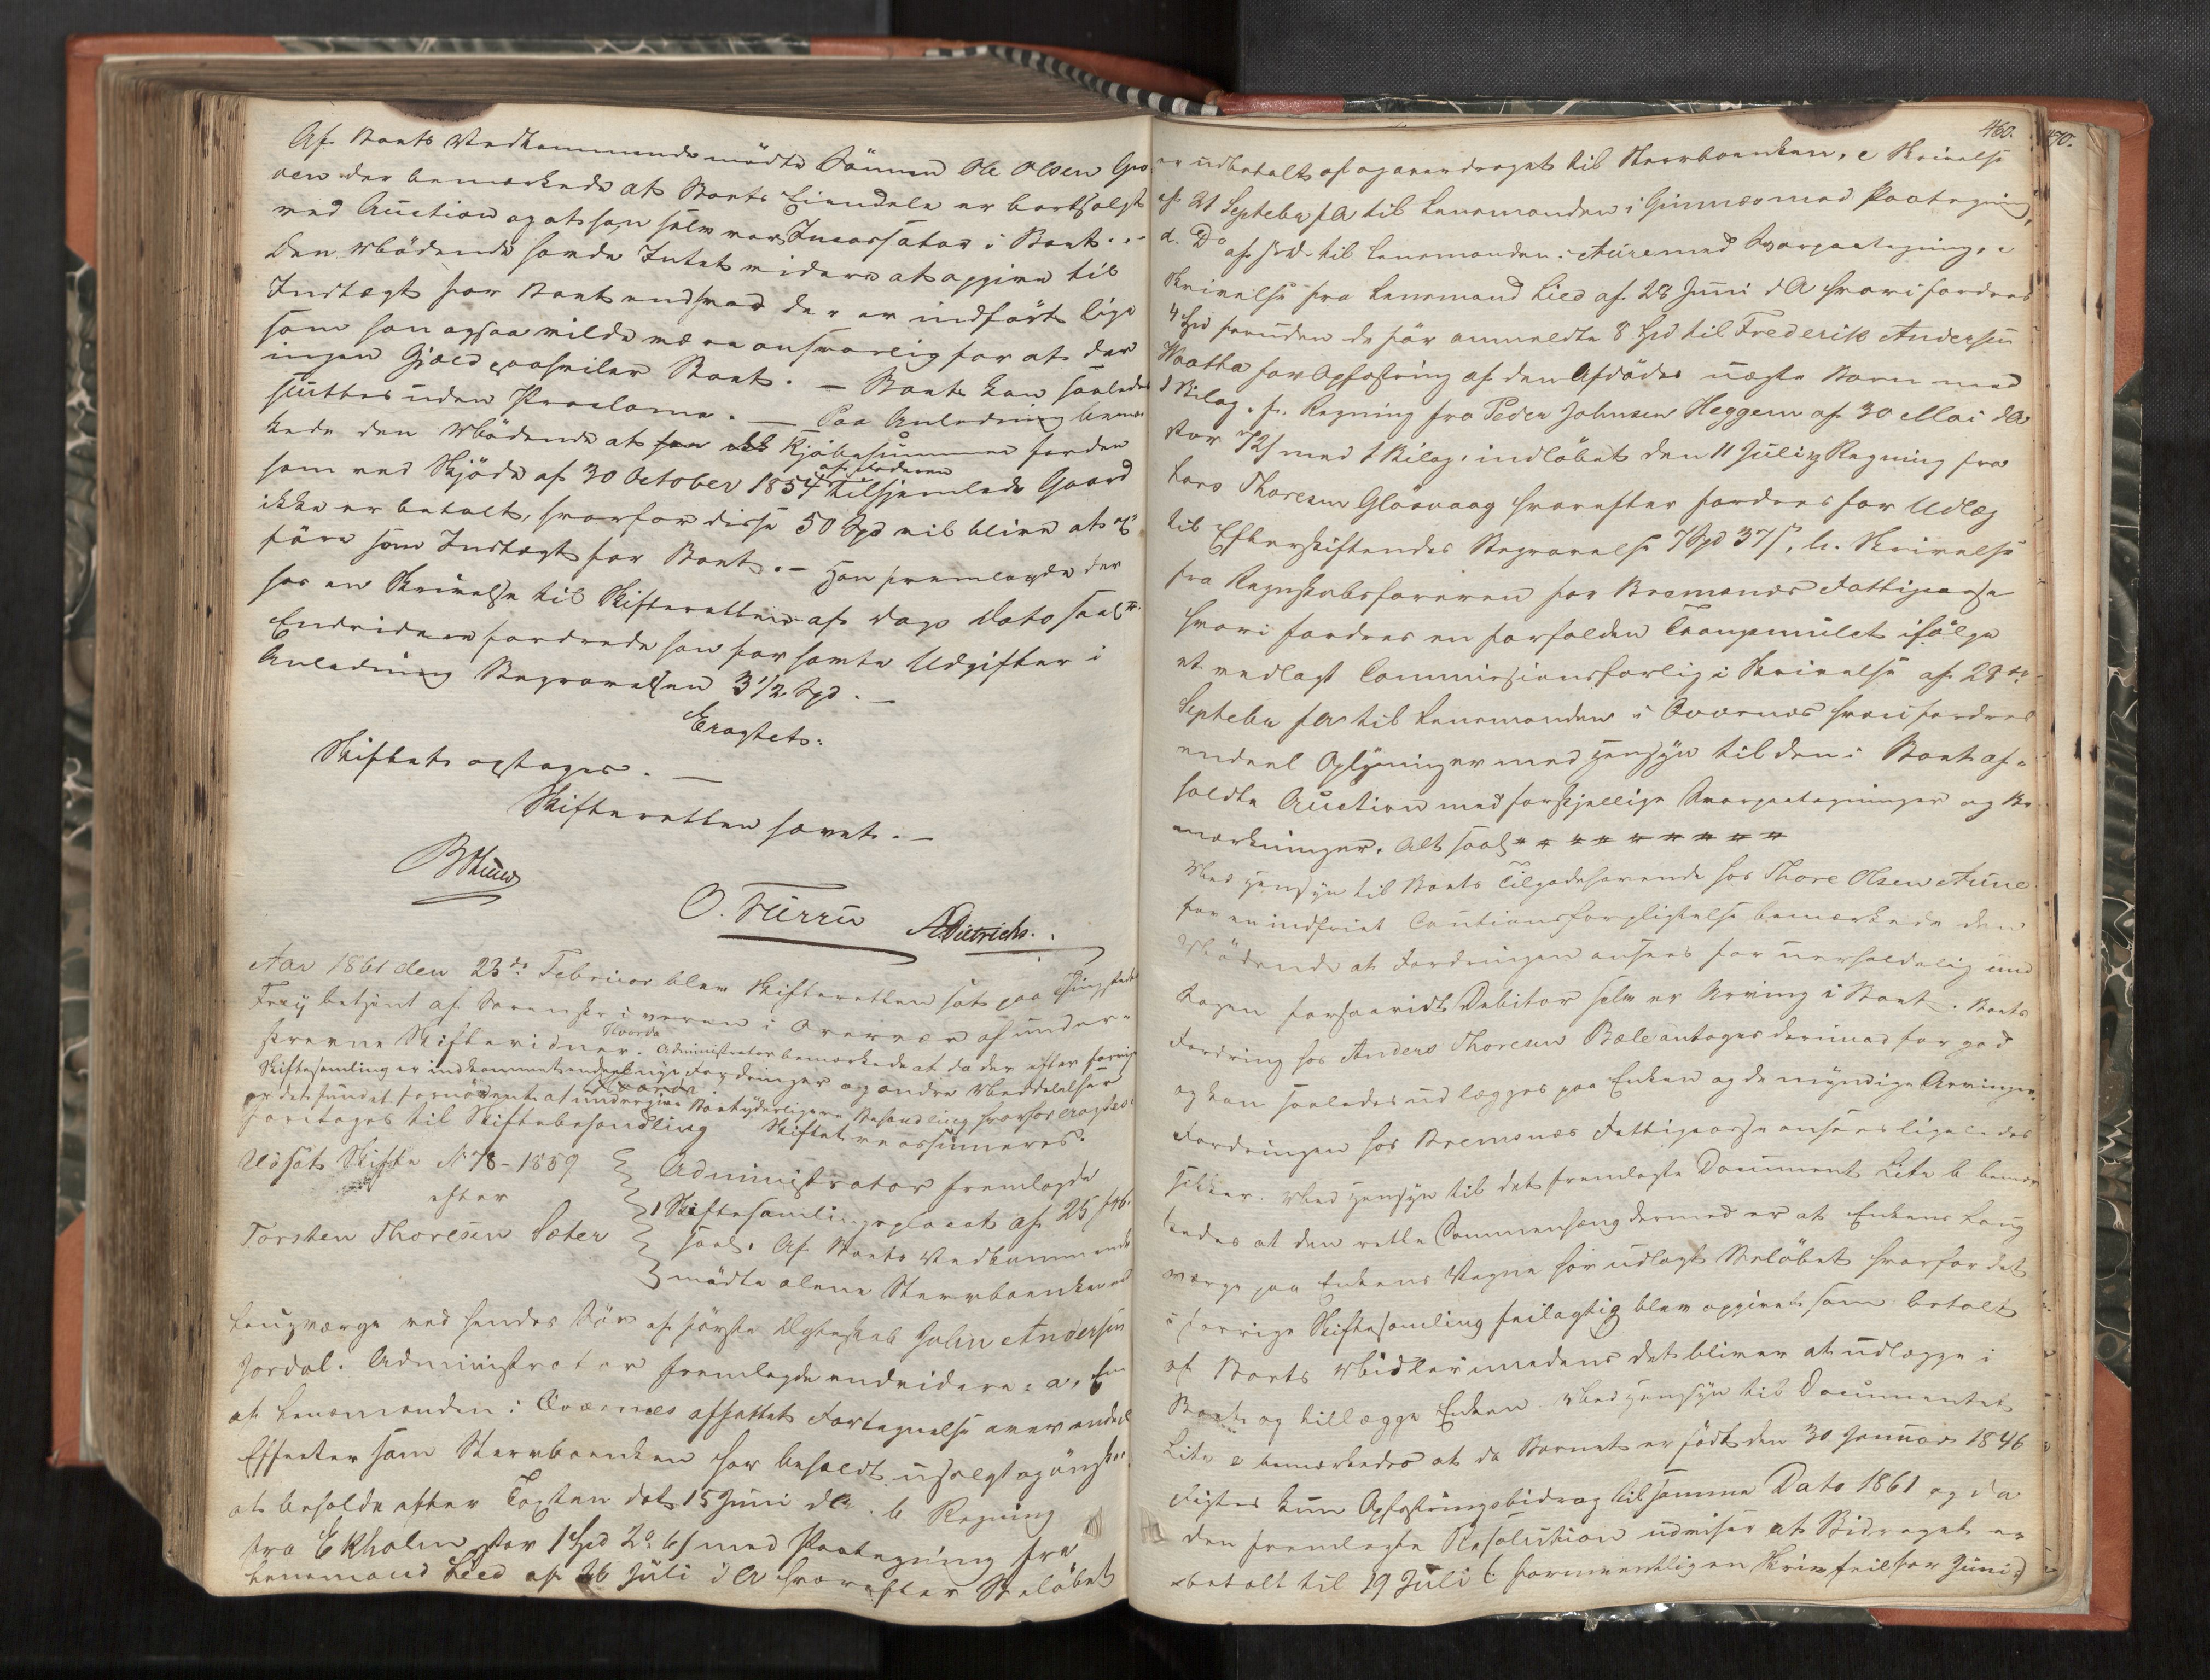 Af Boets Vedkommende mödte Sönnen Ole Olsen Gro
ven der bemærkede at Boets Eiendele er bortsolgt
ved Auction og at han selv var Incassator i Boet. –
Den Mödende havde Intet videre at opgive til
Indtægt for Boet end hvad der er indfört lige
som han ogsaa vilde være ansvarlig for at der
ingen Gjæld paahviler Boet. – Boet kan saaledes
sluttes uden Proclama. – Paa Anledning bemær
kede den Mödende at Kjöbesummen for den
af Moderen
som ved Skjöde af 30 October 1854 tilhjemlede Gaard
ikke er betalt, hvorfor disse 50 Spd vil blive at op
före som Indtægt for Boet. – Han fremlagde der
hos en Skrivelse til Skifteretten af Dags Dato saal.
Endvidere fordrede han for havte Udgifter i
Anledning Begravelsen 3 1/2 Spd. –
Eragtet:
Skiftet optages. –
Skifteretten hævet. –
O. Furru
A Dietrichs.
Aar 1861 den 23de Februar blev Skifteretten sat paa Thingstedet
Frey betjent af Sorenskriveren i Overvær af under-
skrevne Skiftevidner. Hvorda
Administrator bemærkede at da der efter forrige
Skiftesamling er indkommet endeel nye Fordringer og andre Meddelelser
er det fundet fornödent at undergive Boet yderligere Behandling hvorfor eragtes:
foretoges til Skiftebehandling Skiftet reassumeres.
Udsat Skifte N 78 - 1859
efter
Torsten Thoresen Sæter
Administrator fremlagde
1 Skiftesamlingsplacat af 25 f. M.
saal. Af Boets Vedkommende
mödte alene Sterboenken ved
Laugværge ved hendes Sön af förste Ægteskab John Andersen
Jordal. Administrator fremlagde endvidere: a, En
af Lensmanden i Qværnes affattet Fortegnelse over endeel
Effecter som Sterboenken har beholdt usolgt og önsker
at beholde efter Taxten dat. 15 Juni d. A. b Regning
fra Ekholm stor 1 Spd 2 o 6 s med Paategning fra
Lensmand Lied af 26 Juli d A hvorefter Belöbet
460.
470.
er udbetalt af og overdraget til Sterboenken, c Skrivelse
af 21 Septebr f A til Lensmanden i Gimnæs med Paategning,
d. Do af s. D. til Lensmanden i Aure med Svarpaategning, e
Skrivelse fra Lensmand Lied af 28 Juni d A hvori fordres
4 Spd foruden de för anmeldte 8 Spd til Frederik Andersen
for Opfostring af den Afdödes uægte Barn med
1 Bilag. f. Regning fra Peder Johnsen Heggem af 30 Mai d A
stor 72 s med 1 Bilag, indlöbet den 11 Juli g Regning fra
Lars Thoresen Glaavaag hvorefter fordres for Udlæg
til Efterskiftendes Begravelse 7 Spd 37 s, h. Skrivelse
fra Regnskabsföreren for Bremsnæs Fattigcasse
hvori fordres en forfalden Trangsmulct ifölge
et vedlagt Commissionsforlig i Skrivelse af 28de
Septebr f A til Lensmanden i Qværnæs hvori fordres
endeel Oplysninger med Hensyn til den i Boet af-
holdte Auction med forskjellige Svarpaategninger og Be
mærkninger. Alt saal. # # # # # # # # # #
Med Hensyn til Boets Tilgodehavende hos Thore Olsen Aune
for en indfriet Cautionsforpligtelse bemærkede den
Mödende at Fordringen ansees for uerholdelig und
tagen forsaavidt Debitor selv er Arving i Boet. Boets
Fordring hos Anders Thoresen Bæle antages derimod for god
og kan saaledes udlægges paa Enken og de myndige Arvinger.
Fordringen hos Bremsnæs Fattigcasse ansees ligeledes
sikker. Med Hensyn til det fremlagte Document Litr b bemær
kedes at den rette Sammenhæng dermed er at Enkens Laug
værge paa Enkens Vegne har udlagt Belöbet hvorfor det
i forrige Skiftesamling feilagtig blev opgivet som betalt
af Boets Midler medens det bliver at udlægge i
Boet og tillægge Enken. Med Hensyn til Documentet
Litr e bemærkedes at da Barnet er födt den 30 Januar 1846
Opfostringsbidrag til samme Dato 1861 og da
den fremlagte Resolution udviser at Bidraget er
betalt til 19 Juli (: formeentlig en Skrivfeil for Juni :)